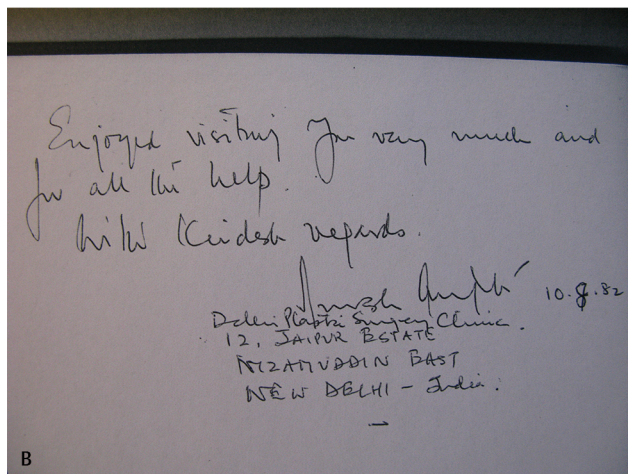 Enjoyed visiting you very much and
for all the help.
With Kindest regards.
10.8.82
Delhi Plastic Surgery Clinic.
12, JAIPUR ESTATE
NIZAMUDDIN EAST
NEW DELHI - India.
B